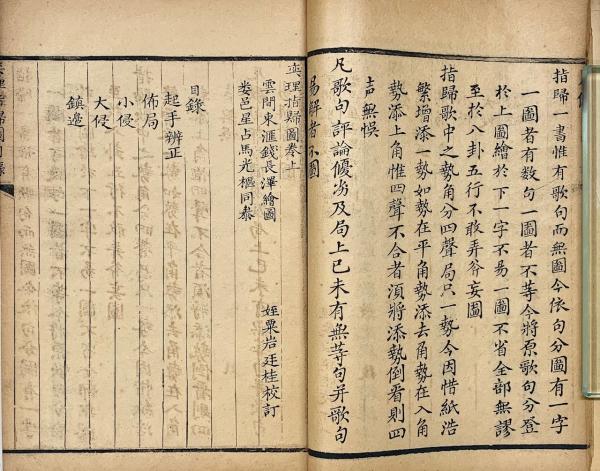 指歸一書惟有歌句而無圖今依句分圖有一字
一圖者有数句一圖者不等今將原歌句分登
於上圖繪於下一字不易一圖不省全部無謬
至於八卦五行不敢弄斧妄圖
指歸歌中之勢角分四聲局只一勢今因惜紙浩
繁增添一勢如勢在平角勢添去角勢在入角
勢添上角惟四聲不合者湏將添勢倒看則四
声無悞
凡歌句評論優劣及局上已未有無等句并歌句
易解者不圖
奕理指歸圖卷上
雲間東滙錢長澤繪圖
婁邑星占馬光樞同叅
姪粟岩廷桂校訂
目錄
起手辨正
佈局
小侵
大侵
鎮邉